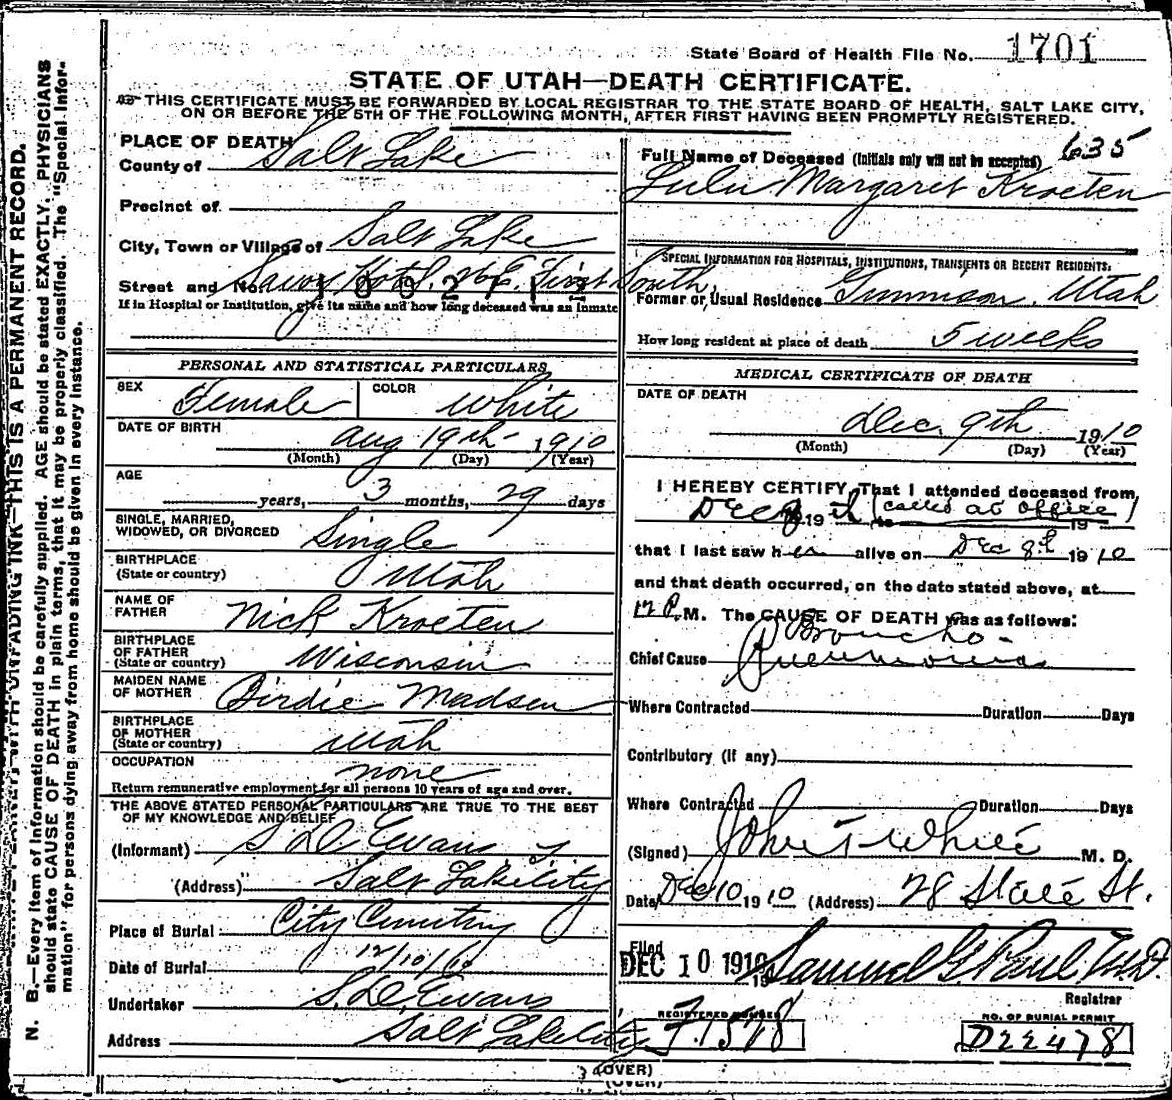 State Board of Health File No. 1701
STATE OF UTAH—DEATH CERTIFICATE.
THIS CERTIFICATE MUST BE FORWARDED BY LOCAL REGISTRAR TO THE STATE BOARD OF HEALTH, SALT LAKE CITY,
ON OR BEFORE THE 5TH OF THE FOLLOWING MONTH, AFTER FIRST HAVING BEEN PROMPTLY REGISTERED.
N. B.—Every item of information should be carefully supplied. AGE should be stated EXACTLY. PHYSICIANS
should state CAUSE OF DEATH in plain terms, that it may be properly classified. The "Special Infor-
mation" for persons dying away from home should be given in every instance.
UNFADING INK—THIS IS A PERMANENT RECORD.
PLACE OF DEATH
County of Salt Lake
Precinct of
City, Town or Village of Salt Lake
Street and No. Hotel, First South,
If in Hospital or Institution, give its name and how long deceased was an inmate
PERSONAL AND STATISTICAL PARTICULARS
SEX Female COLOR White
DATE OF BIRTH Aug 19th 1910
(Month) (Day) (Year)
AGE
years, 3 months, 29 days
SINGLE, MARRIED,
WIDOWED, OR DIVORCED Single
BIRTHPLACE
(State or country) Utah
NAME OF
FATHER Nick Kroeten
BIRTHPLACE
OF FATHER
(State or country) Wisconsin
MAIDEN NAME
OF MOTHER Birdie Madsen
BIRTHPLACE
OF MOTHER
(State or country) Utah
OCCUPATION none
Return remunerative employment for all persons 10 years of age and over.
THE ABOVE STATED PERSONAL PARTICULARS ARE TRUE TO THE BEST
OF MY KNOWLEDGE AND BELIEF
(Informant) S D Evans
(Address) Salt Lake City
Place of Burial City Cemetery
Date of Burial 12/10/10
Undertaker S. D. Evans
Address Salt Lake City
Full Name of Deceased (Initials only will not be accepted) 635
Lulu Margaret Kroeten
SPECIAL INFORMATION FOR HOSPITALS, INSTITUTIONS, TRANSIENTS OR RECENT RESIDENTS.
Former or Usual Residence Gunnison, Utah
How long resident at place of death 5 weeks
MEDICAL CERTIFICATE OF DEATH
DATE OF DEATH
Dec. 9th 1910
(Month) (Day) (Year)
I HEREBY CERTIFY, That I attended deceased from
Dec 19 to (called at office) 19
that I last saw her alive on Dec 8th 1910
and that death occurred, on the date stated above, at
12 P.M. The CAUSE OF DEATH was as follows:
Broncho-
Chief Cause Pneumonia
Where Contracted Duration Days
Contributory (if any)
Where Contracted Duration Days
(Signed) John T White M. D.
Date Dec 10 1910 (Address) 28 State St.
Filed
DEC 10 1910 19 Samuel G. Paul, M.D.
Registrar
REGISTERED NUMBER
J. 1578
NO. OF BURIAL PERMIT
D22478
(OVER)
(OVER)